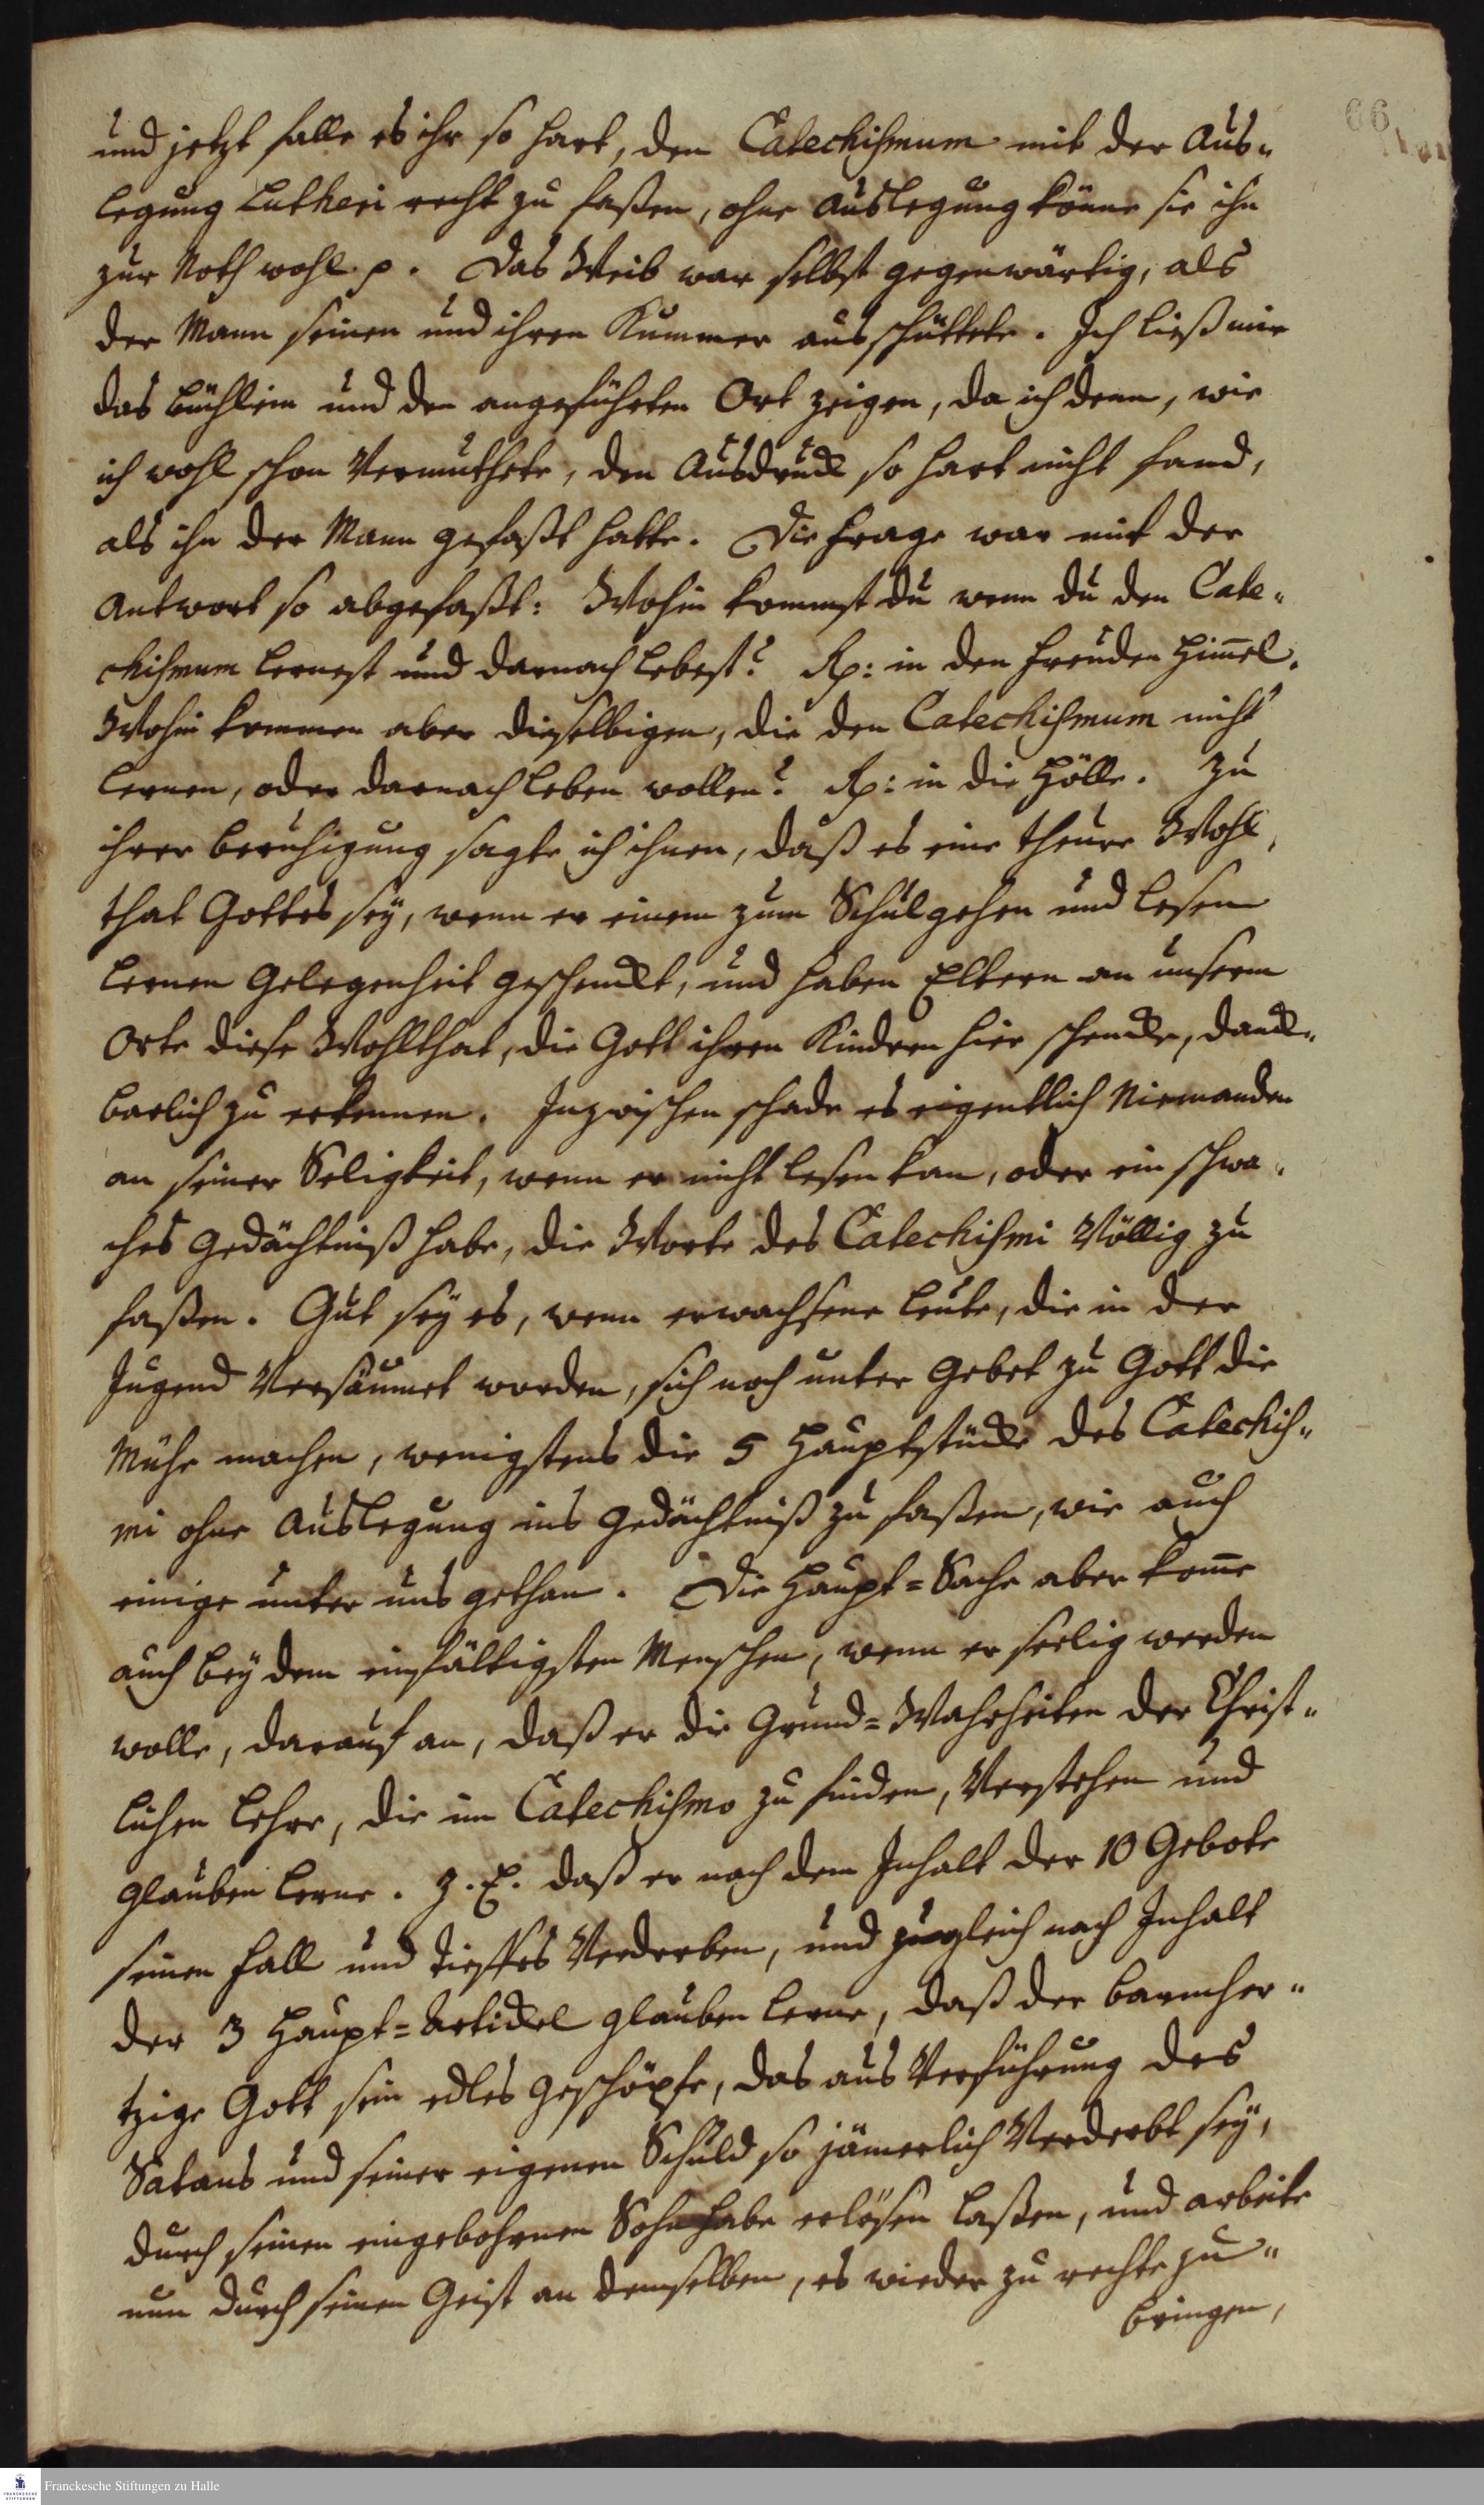 66
und jetzt falle es ihr so hart, den Catechismum mit der Aus„
legung Lutheri recht zu faßen, ohne Auslegung könne sie ihn
zur Noth wohl p. Das Weib war selbst gegenwärtig, als
der Mann seinen und ihren Kummer ausschüttete. Ich ließ mir
das Büchlein und den angeführten Ort zeigen, da ich denn, wie
ich wohl schon vermuthete, den Ausdruck so hart nicht fand,
als ihn der Mann gefaßt hatte. Die Frage war mit der
Antwort so abgefaßt: Wohin kommst du wenn du den Cate„
chismum lernest und darnach lebest? Rp: in den Freuden Him̅el.
Wohin kommen aber dieselbigen, die den Catechismum nicht
lernen, oder darnach leben wollen? Rp: in die Hölle. Zu
ihrer Beruhigung sagte ich ihnen, daß es eine theure Wohl„
that Gottes sey, wenn er einem zum Schulgehen und Lesen
lernen Gelegenheit geschenckt, und haben Eltern an unserm
Orte diese Wohlthat, die Gott ihren Kindern hier schencke, danck„
barlich zu erkennen. Inzwischen schade es eigentlich Niemanden
an seiner Seligkeit, wenn er nicht lesen kan, oder ein schwa„
ches Gedächtniß habe, die Worte des Catechismi völlig zu
faßen. Gut sey es, wenn erwachsene Leute, die in der
Jugend versäumet worden, sich noch unter Gebet zu Gott die
Mühe machen, wenigstens die 5 Hauptstücke des Catechis„
mi ohne Auslegung ins Gedächtniß zu faßen, wie auch
einige unter uns gethan. Die Haupt=Sache aber kom̅e
auch bey dem einfältigsten Menschen, wenn er seelig werden
wolle, darauf an, daß er die Grund=Wahrheiten der Christ„
lichen Lehre, die im Catechismo zu finden, verstehen und
glauben lerne. Z. E. daß er nach dem Inhalt der 10 Gebote
seinen Fall und tieffes Verderben, und zugleich nach Inhalt
der 3 Haupt=Artickel glauben lerne, daß der barmher„
tzige Gott sein edles Geschöpfe, das aus Verführung des
Satans und seiner eigenen Schuld so jämerlich verderbt sey,
durch seinen eingebohrnen Sohn habe erlösen laßen, und arbeite
nun durch seinen Geist an demselben, es wieder zu rechte zu„
bringen,
Franckesche Stiftungen zu Halle
FRANCKESCHE
STIFTUNGEN